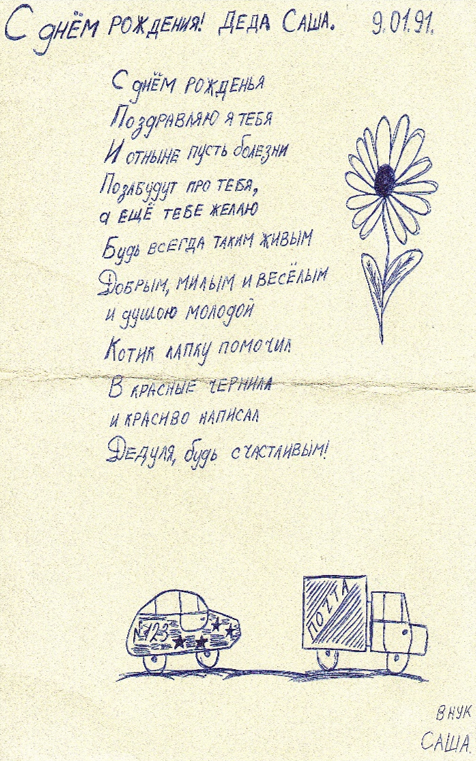 С днём рождения! Деда Саша. 9.01.91.
С днём рожденья
Поздравляю я тебя
И отныне пусть болезни
Позабудут про тебя,
а ещё тебе желаю
Будь всегда таким живым
Добрым, милым и весёлым
и душою молодой
Котик лапку помочил
В красные чернила
и красиво написал
Дедуля, будь счастливым!
№123
ПОЧТА
внук
Саша